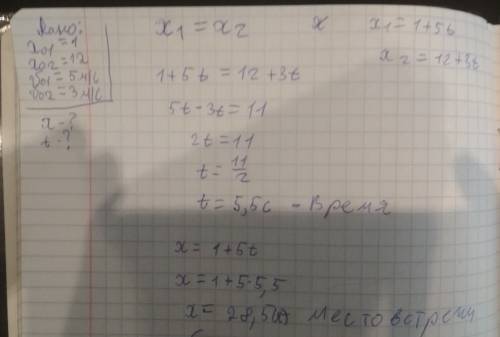 Дано:
x01 = 1
x02 = 12
v01 = 5 м/с
v02 = 3 м/с
x - ?
t - ?
x1 = x2
x x1 = 1+5t
x2 = 12+3t
1+5t = 12+3t
5t-3t=11
2t=11
t = 11/2
t = 5,5с - время
x = 1+5t
x = 1+5·5,5
x = 28,5 место встречи